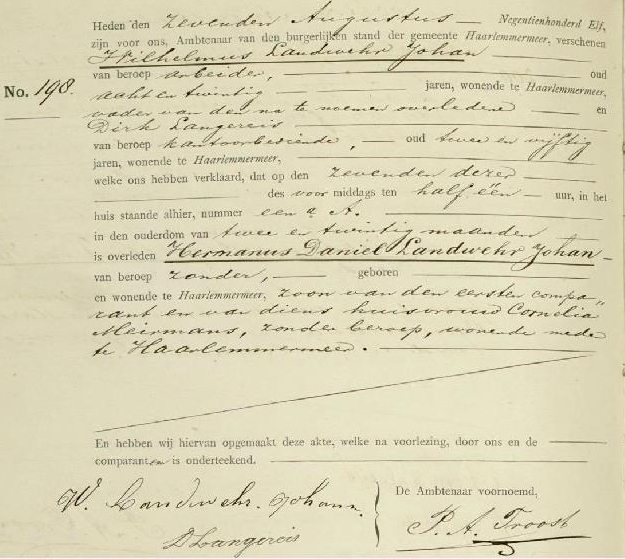 Heden den zevenden Augustus Negentienhonderd Elf,
zijn voor ons, Ambtenaar van den burgerlijken stand der gemeente Haarlemmermeer, verschenen
Wilhelmus Landwehr Johan
van beroep arbeider, oud
No. 198.
acht en twintig jaren, wonende te Haarlemmermeer,
vader van den na te noemen overledene en
Dirk Langereis
van beroep kantoorbediende, oud twee en vijftig
jaren, wonende te Haarlemmermeer,
welke ons hebben verklaard, dat op den zevenden dezer
des voor middags ten half één uur, in het
huis staande alhier, nummer een a A.
in den ouderdom van twee en twintig maanden
is overleden Hermanus Daniel Landwehr Johan
van beroep zonder, geboren
en wonende te Haarlemmermeer, zoon van den eersten compa„
rant en van diens huisvrouw Cornelia
Meirmans, zonder beroep, wonende mede
te Haarlemmermeer.
En hebben wij hiervan opgemaakt deze akte, welke na voorlezing, door ons en de
comparanten is onderteekend.
W. Landwehr. Johann.
De Ambtenaar voornoemd,
D Langereis
P. A. Troost